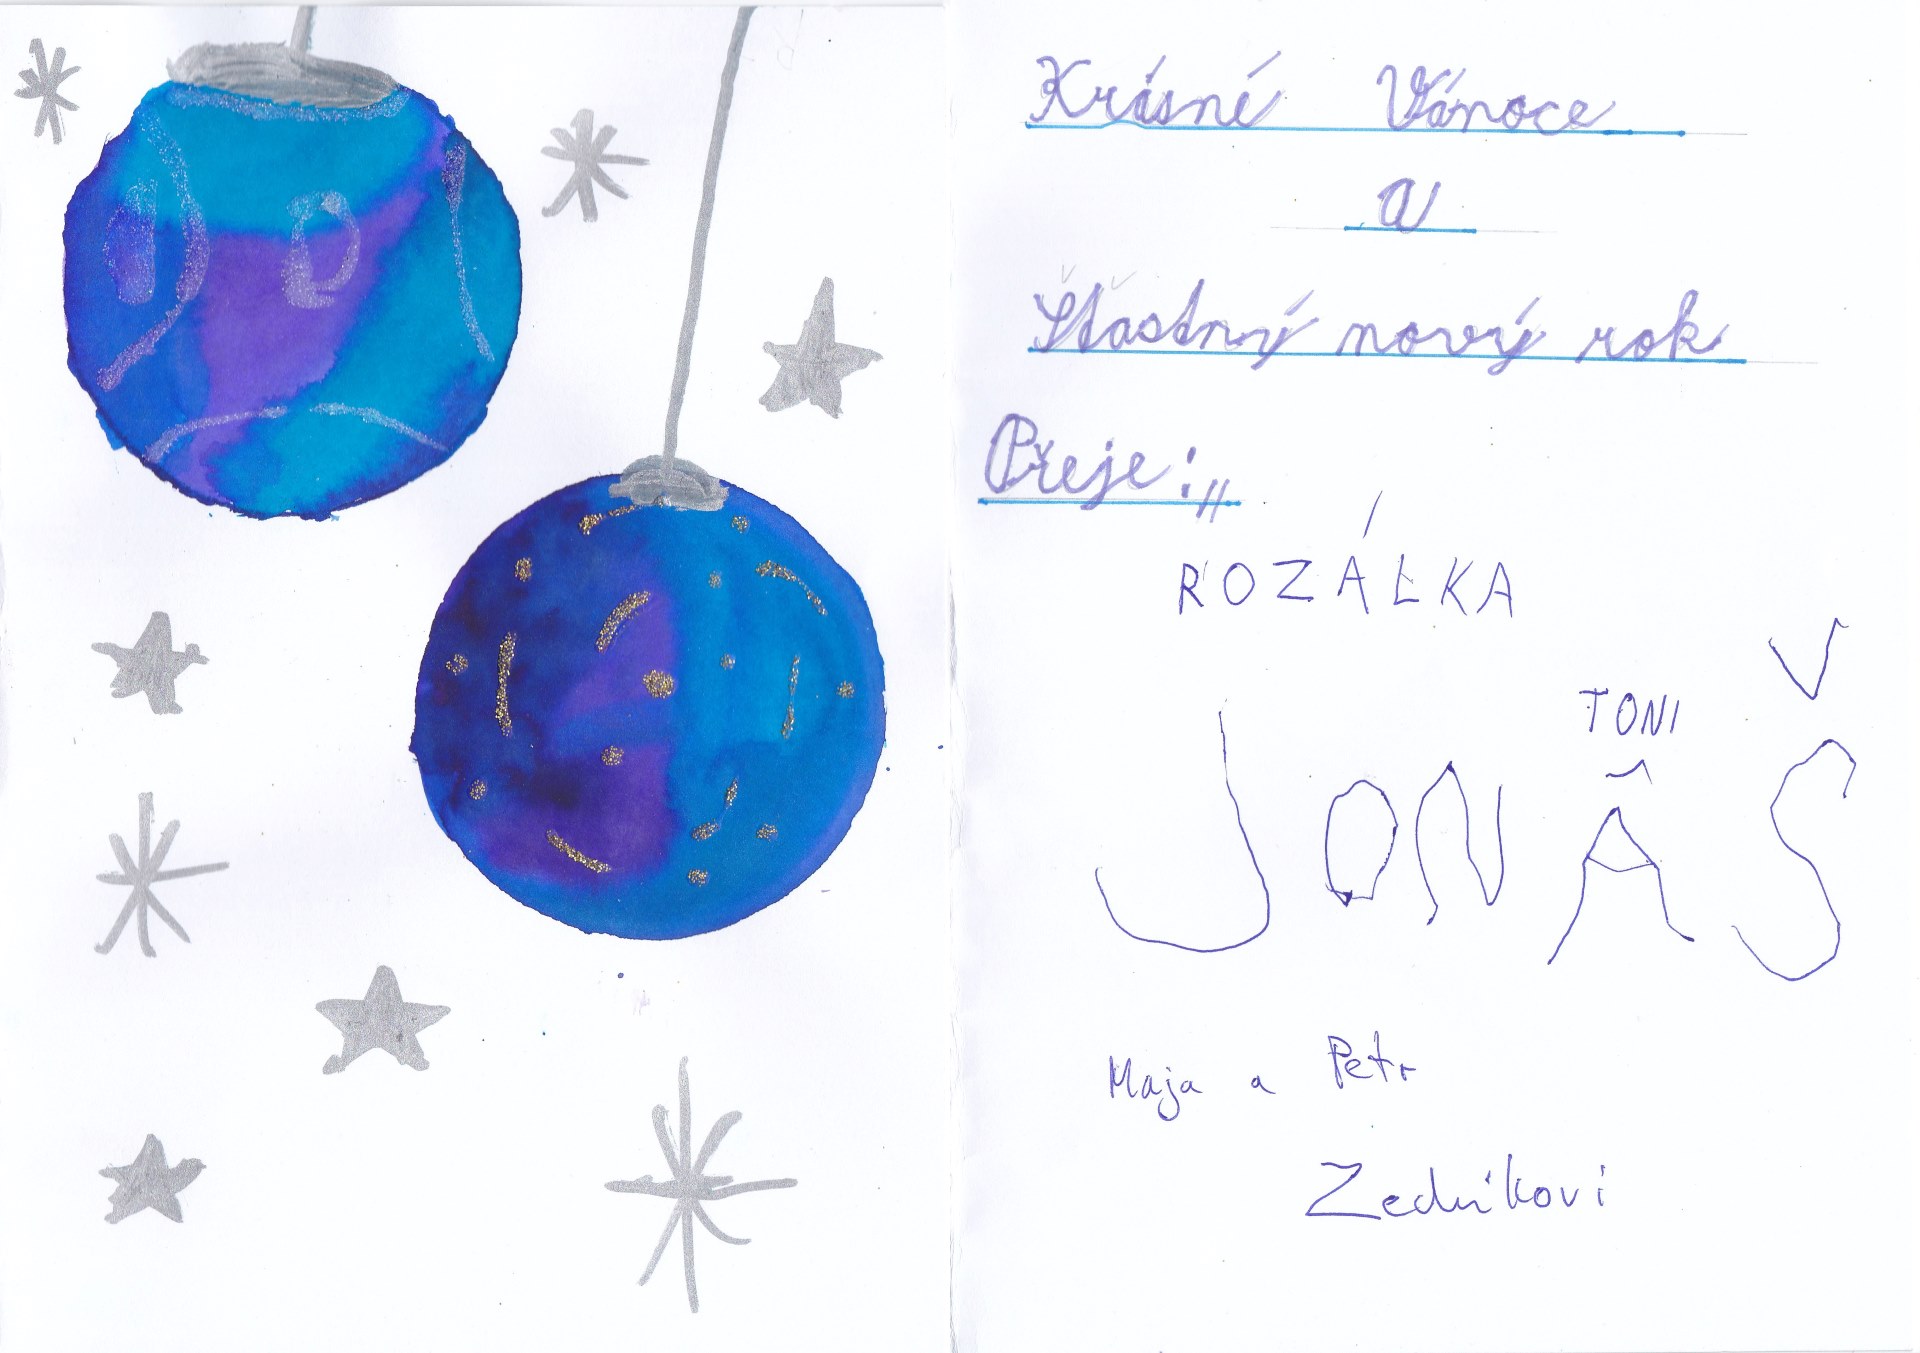 Krásné Vánoce
a
Šťastný nový rok
Přeje:,,
ROZÁLKA
TONI
JONÁŠ
Maja a Petr
Zedníkovi